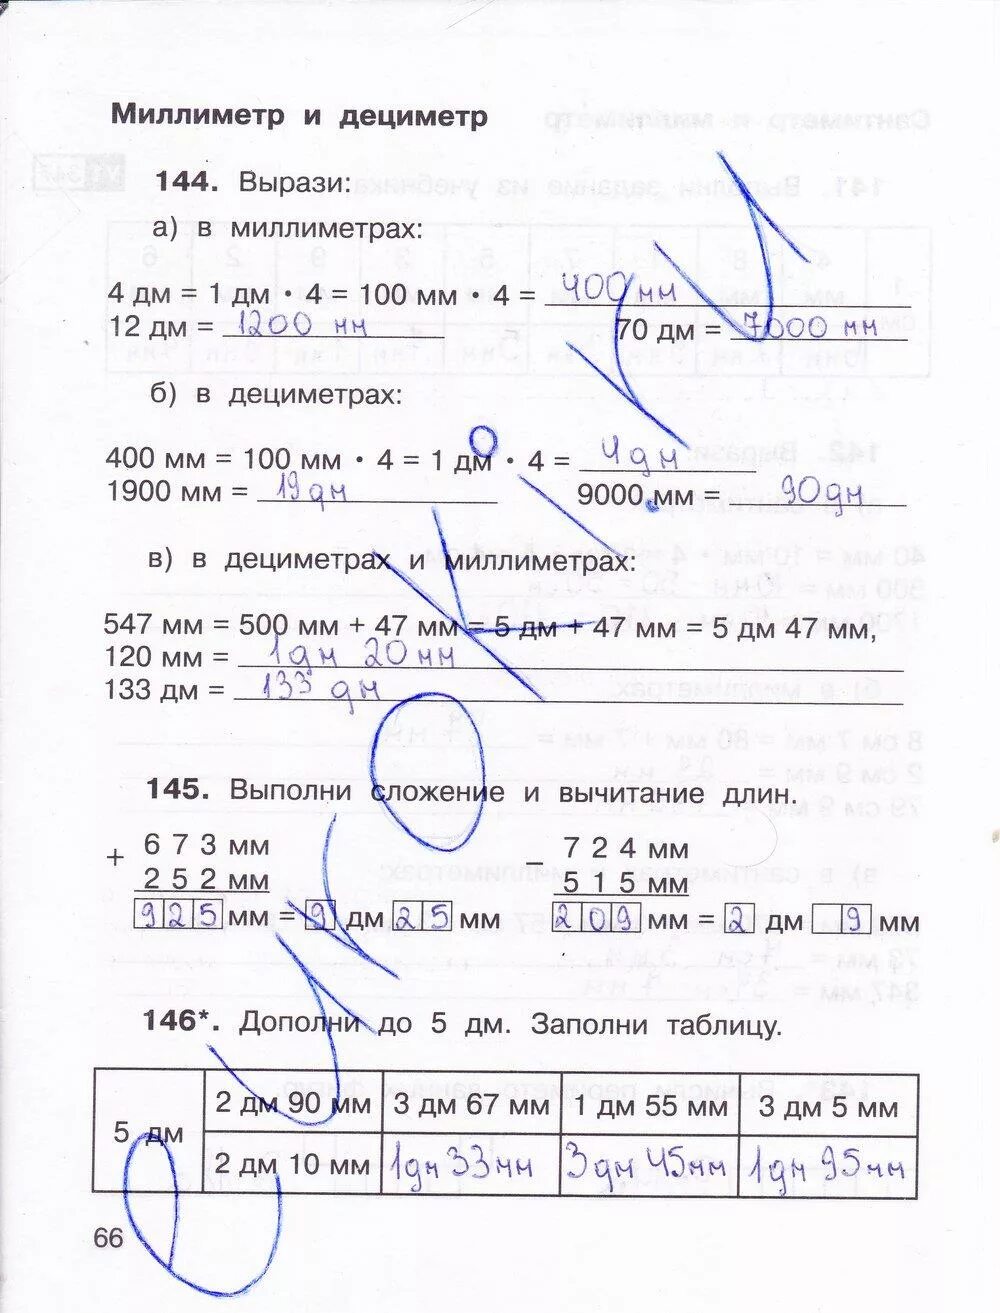 Миллиметр и дециметр
144. Вырази:
а) в миллиметрах:
4 дм = 1 дм · 4 = 100 мм · 4 = 400 мм
12 дм = 1200 мм 70 дм = 7000 мм
б) в дециметрах:
400 мм = 100 мм · 4 = 1 дм · 4 = 4 дм
1900 мм = 19 дм 9000 мм = 90 дм
в) в дециметрах и миллиметрах:
547 мм = 500 мм + 47 мм = 5 дм + 47 мм = 5 дм 47 мм,
120 мм = 1 дм 20 мм
133 дм = 133 дм
145. Выполни сложение и вычитание длин.
+ 673 мм − 724 мм
252 мм 515 мм
925 мм = 9 дм 25 мм 209 мм = 2 дм 9 мм
146*. Дополни до 5 дм. Заполни таблицу.
5 дм
2 дм 90 мм 3 дм 67 мм 1 дм 55 мм 3 дм 5 мм
2 дм 10 мм 1 дм 33 мм 3 дм 45 мм 1 дм 95 мм
66